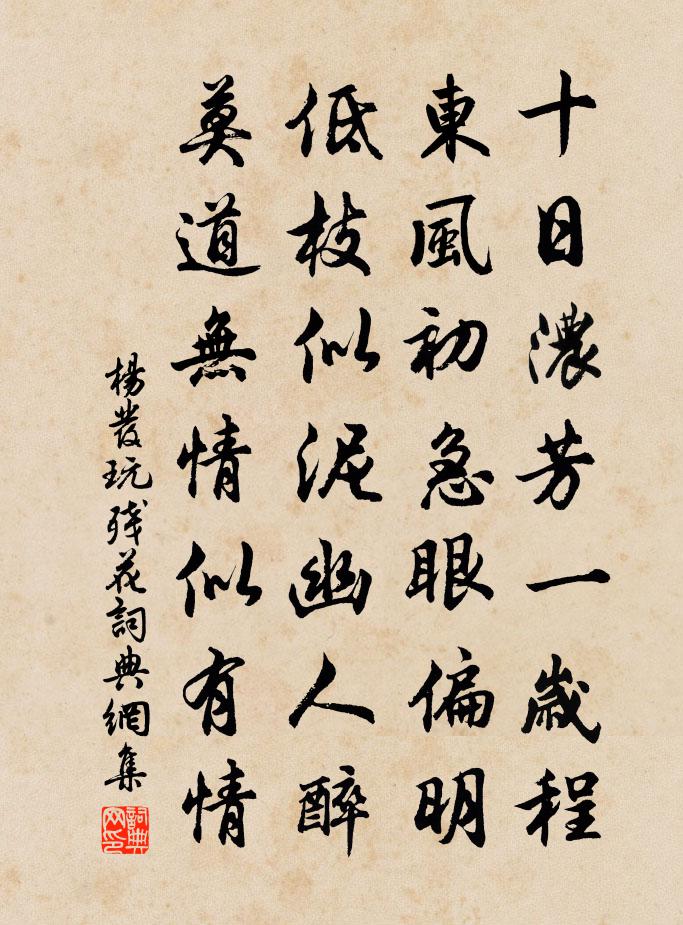 十日濃芳一歲程
東風初急眼偏明
低枝似泥幽人醉
莫道無情似有情
楊發玩殘花詞典網集
詞典網印